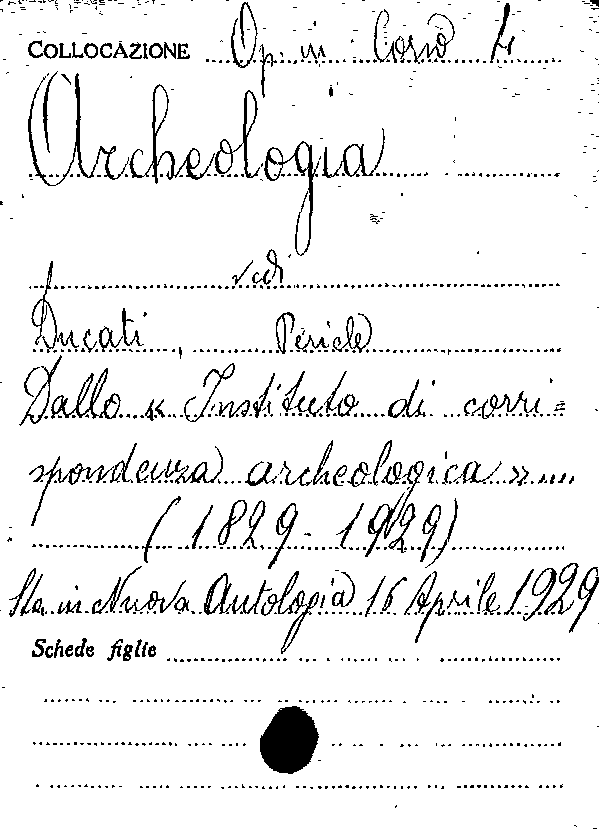 COLLOCAZIONE Op. in Corso 4
Archeologia
vedi
Ducati, Pericle
Dallo « Instituto di corri=
spondenza archeologica »....
(1829-1929)
Sta in Nuova Antologia 16 Aprile 1929
Schede figlie